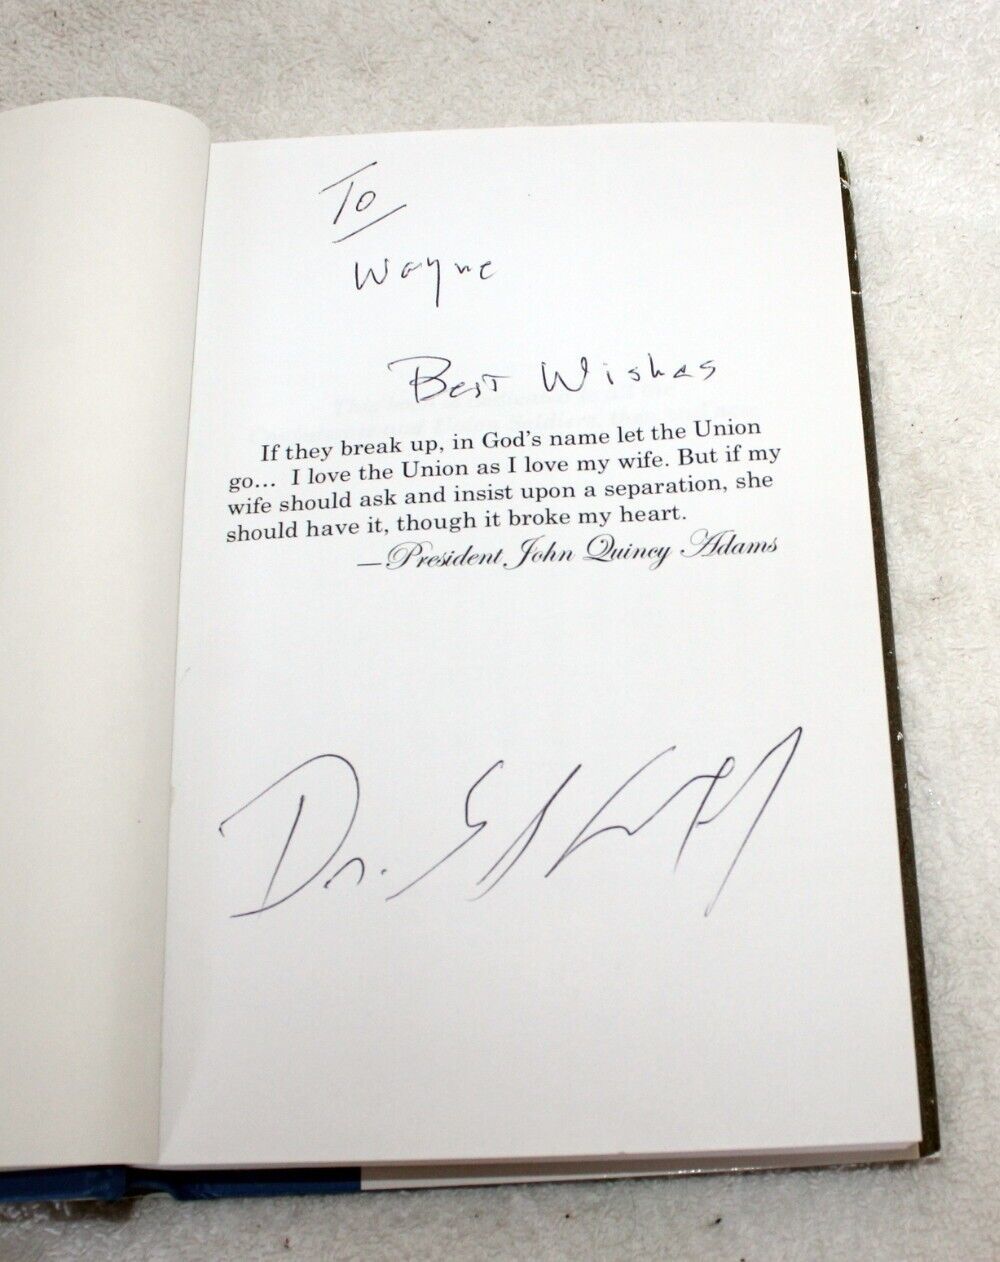 To
Wayne
Best Wishes
If they break up, in God's name let the Union
go... I love the Union as I love my wife. But if my
wife should ask and insist upon a separation, she
should have it, though it broke my heart.
—President John Quincy Adams
Dr.